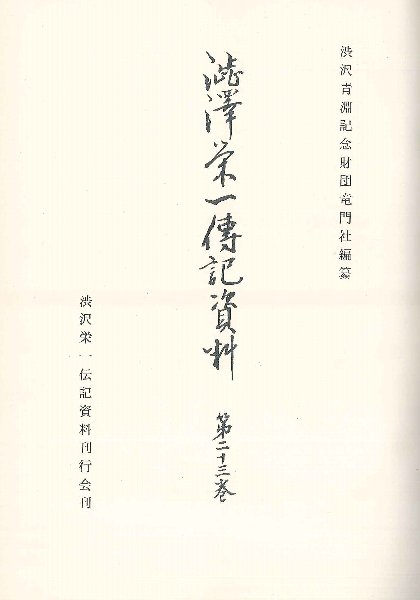 渋沢青淵記念財団竜門社編纂
澁澤栄一傳記資料
第二十三巻
渋沢栄一伝記資料刊行会刊